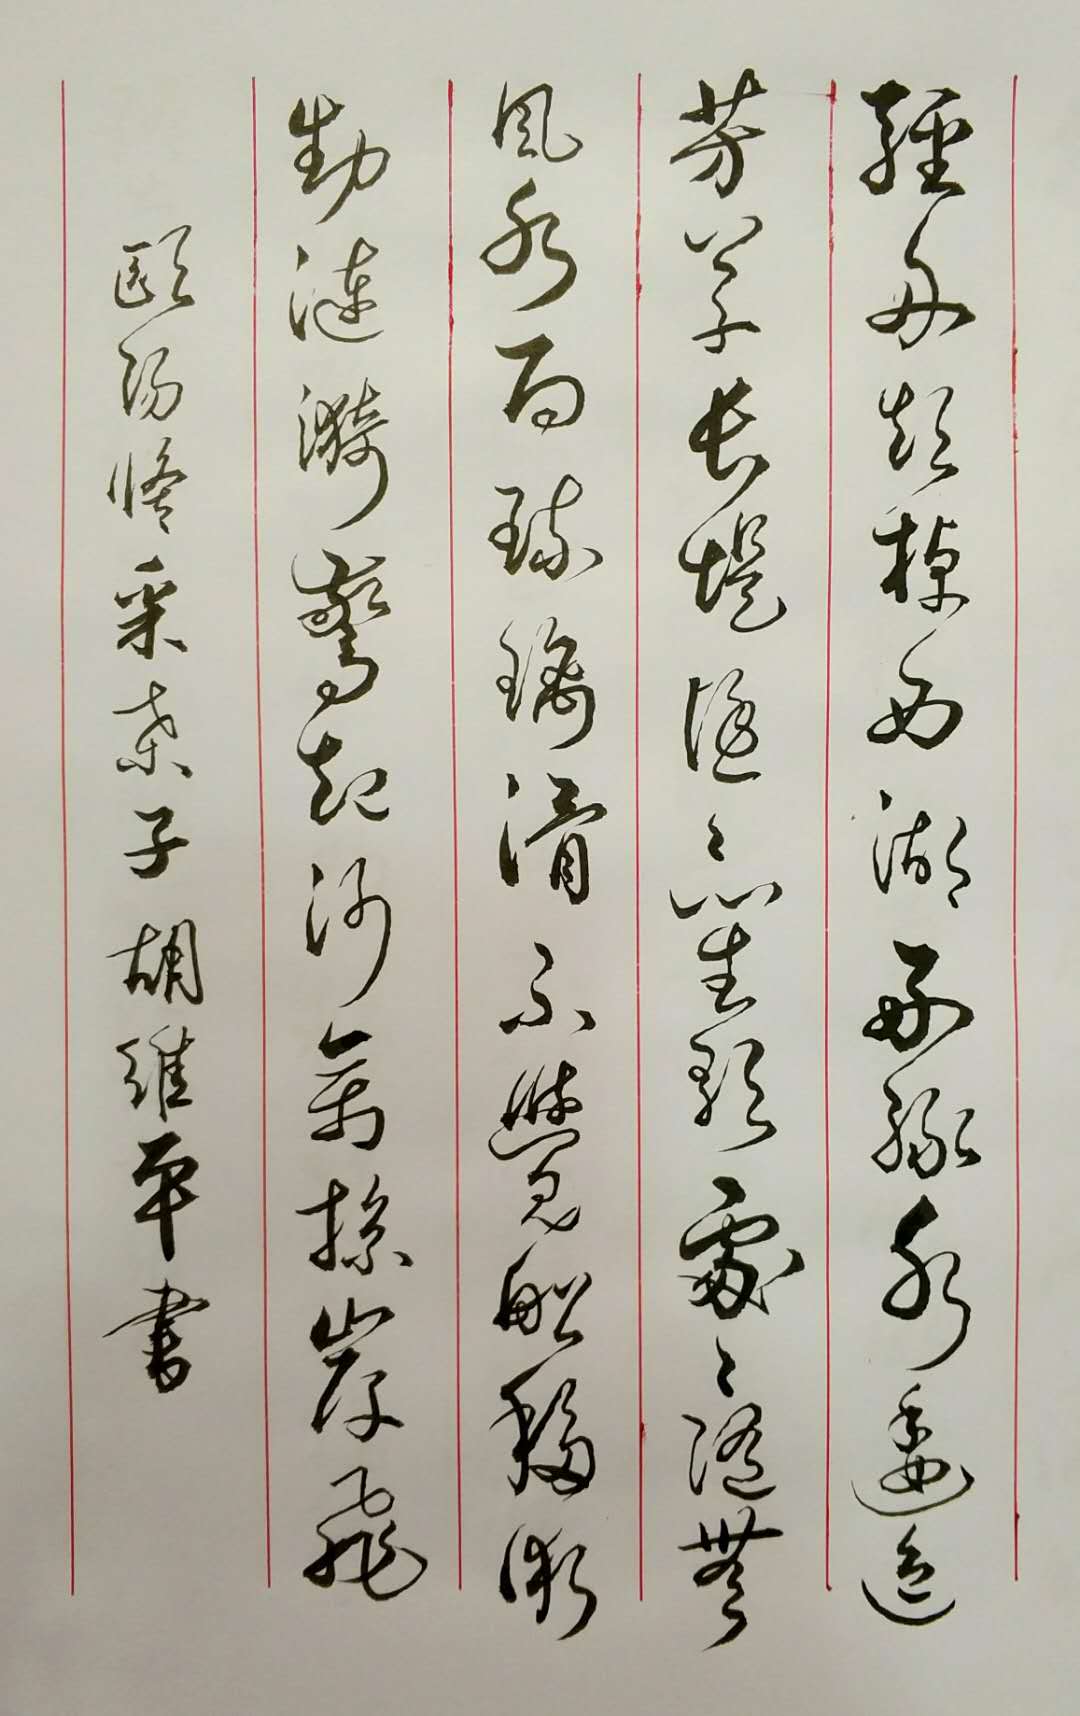 輕舟短棹西湖好綠水逶迤
芳草長堤隱〻笙歌處〻隨無
風水面琉璃滑不覺船移微
動漣漪驚起沙禽掠岸飛
歐陽修采桑子胡維平書